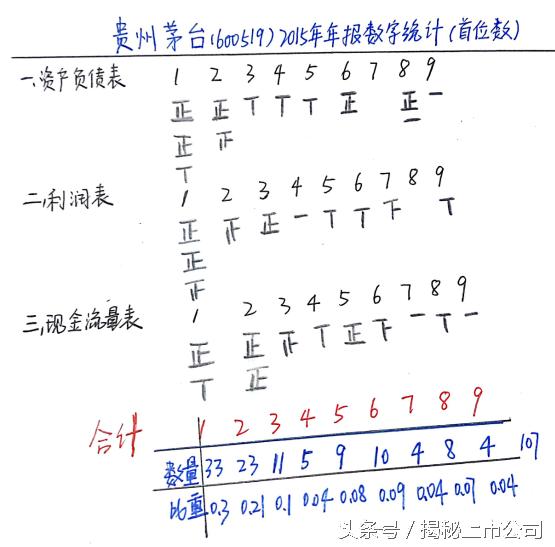 贵州茅台(600519)2015年年报数字统计(首位数)
一、资产负债表 1 2 3 4 5 6 7 8 9
正 正 T T T 正 正 一
正 正 一
T
二、利润表 1 2 3 4 5 6 7 8 9
正 正 正 一 T T 下 T
正
下
三、现金流量表 1 2 3 4 5 6 7 8 9
正 正 正 T 正 下 一 T 一
T 正
合计 1 2 3 4 5 6 7 8 9
数量 33 23 11 5 9 10 4 8 4 107
比重 0.3 0.21 0.1 0.04 0.08 0.09 0.04 0.07 0.04
头条号/揭秘上市公司